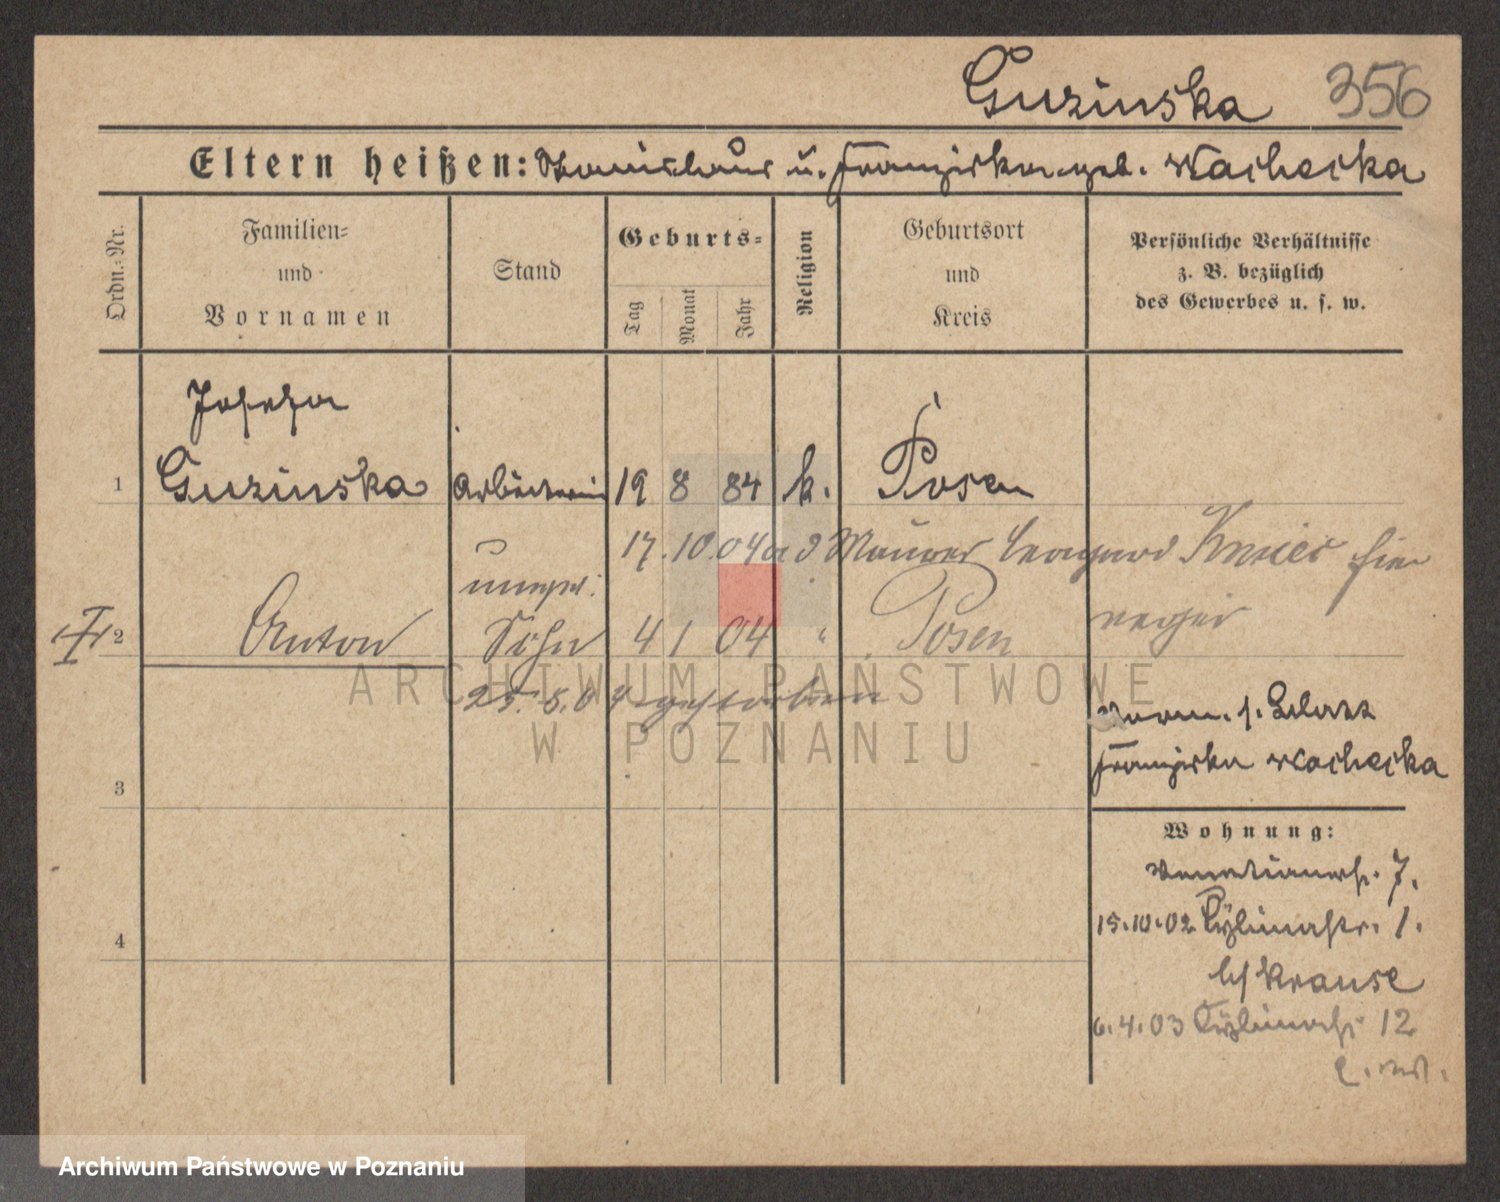 Guzinska 356
Eltern heißen: Stanislaus u. Franziska geb. Wachecka
Ordn.-Nr.
Familien-
und
Vornamen
Stand
Geburts-
Tag
Monat
Jahr
Religion
Geburtsort
und
Kreis
Persönliche Verhältnisse
z. B. bezüglich
des Gewerbes u. s. w.
Josefa
1 Guzinska Arbeiterin 19 8 84 k. Posen
17. 10. 04 a d Maurer
2 Anton Sohn 4 1 04 " Posen
25. 8. 04 gestorben
ARCHIWUM PAŃSTWOWE
W POZNANIU
Franziska Wachecka
3
Wohnung:
7.
15.10.02 1.
4
b/ Krause
6.4.03 12
Archiwum Państwowe w Poznaniu